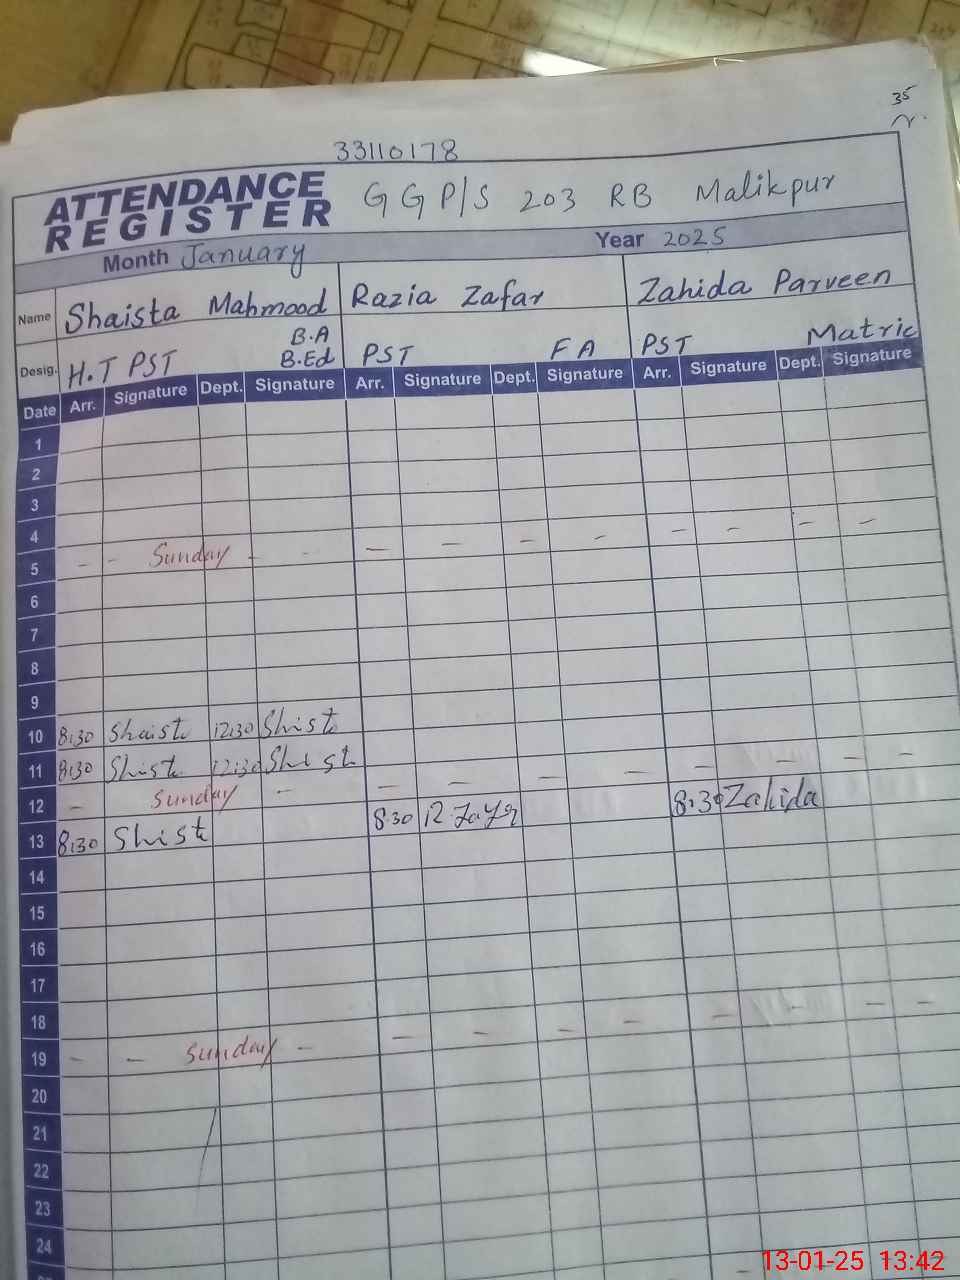 35
33110178
ATTENDANCE REGISTER GGP/S 203 RB Malikpur
Month January Year 2025
Name Shaista Mahmood Razia Zafar Zahida Parveen
Desig. H.T PST B.A B.Ed PST FA PST Matric
Date Arr. Signature Dept. Signature Arr. Signature Dept. Signature Arr. Signature Dept. Signature
1
2
3
4
5 - - Sunday - - - - - - - - - -
6
7
8
9
10 8:30 Shaist 12:30 Shist
11 8:30 Shist 12:30 Shist
12 - Sunday - - - - - - - -
13 8:30 Shist 8:30 R.Zafar 8:30 Zahida
14
15
16
17
18
19 - - Sunday - - - - - - - - -
20
21
22
23
24
13-01-25 13:42